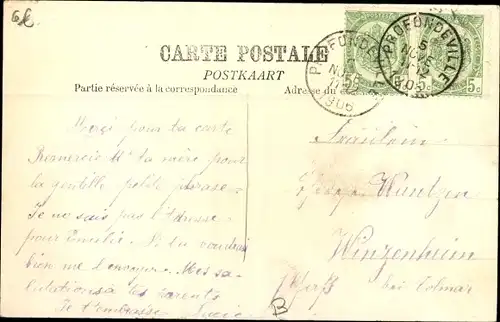 6
CARTE POSTALE
POSTKAART
Partie réservée à la correspondance
Adresse du
PROFONDEVILLE
NOV
1906
PROFONDEVILLE
5
NOV
1906
5c
5c
Merci pour ta carte
Remercie Me ta mère pour
la gentille petite phrase.
Je ne sais pas l'Adresse
pour Emilie. Si tu voudrais
bien me l'envoyer. Mes sa-
lutations à tes parents
Je t'embrasse Lucie
Fräulein
Wuntzer
Winzenheim
bei Colmar
B